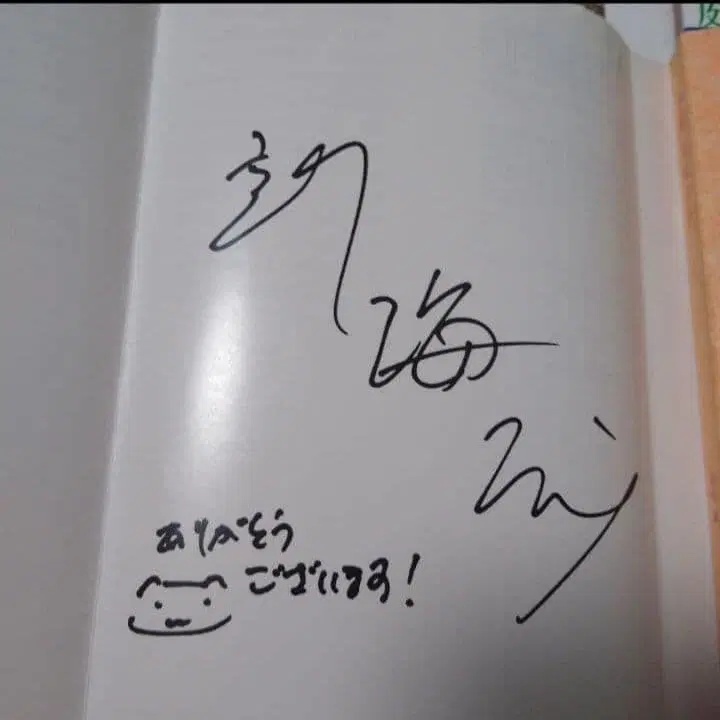 新
海
誠
ありがとう
ございます!